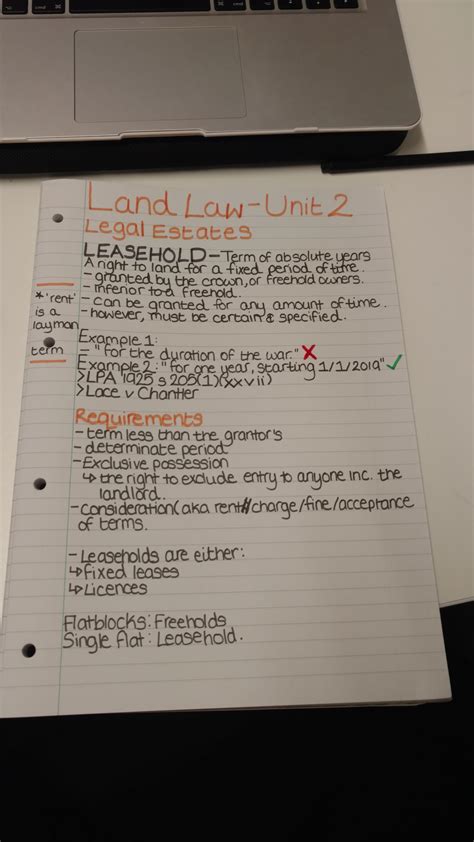 Land Law - Unit 2
Legal Estates
LEASEHOLD - Term of absolute years
A right to land for a fixed period of time.
- granted by the crown, or freehold owners.
- inferior to a freehold.
- can be granted for any amount of time.
- however, must be certain & specified.
* 'rent'
is a
layman
term
Example 1:
- "for the duration of the war." X
Example 2: "for one year, starting 1/1/2019" ✓
> LPA 1925 s 205(1)(xxvii)
> Lace v Chantler
Requirements
- term less than the grantor's
- determinate period
- Exclusive possession
↳ the right to exclude entry to anyone inc. the
landlord.
- Consideration (aka rent/charge/fine/acceptance
of terms.
- Leaseholds are either:
↳ fixed leases
↳ Licences
Flatblocks: Freeholds
Single flat: Leasehold.